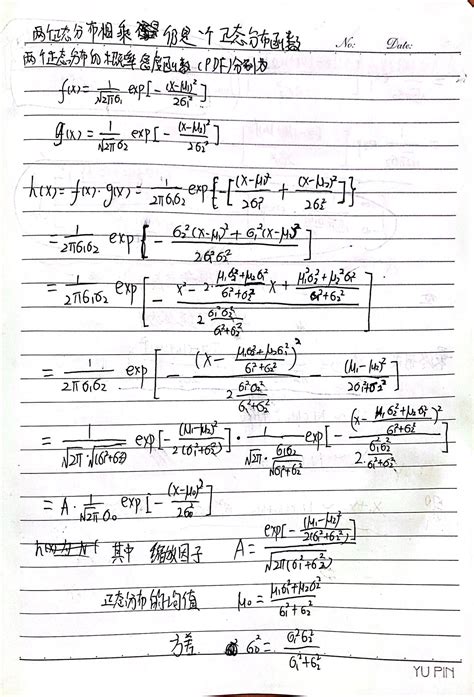 两个正态分布相乘 仍是一个正态分布函数
No: Date:
两个正态分布的概率密度函数(PDF)分别为
f(x) = 1/(√2π σ₁) exp[-(x-μ₁)²/(2σ₁²)]
g(x) = 1/(√2π σ₂) exp[-(x-μ₂)²/(2σ₂²)]
h(x) = f(x)·g(x) = 1/(2πσ₁σ₂) exp{-[(x-μ₁)²/(2σ₁²) + (x-μ₂)²/(2σ₂²)]}
= 1/(2πσ₁σ₂) exp{-[σ₂²(x-μ₁)² + σ₁²(x-μ₂)²]/(2σ₁²σ₂²)]
= 1/(2πσ₁σ₂) exp[-(x² - 2·(μ₁σ₂²+μ₂σ₁²)/(σ₁²+σ₂²) x + (μ₁²σ₂²+μ₂²σ₁²)/(σ₁²+σ₂²))/(2 σ₁²σ₂²/(σ₁²+σ₂²))]
= 1/(2πσ₁σ₂) exp[-(x - (μ₁σ₂²+μ₂σ₁²)/(σ₁²+σ₂²))²/(2 σ₁²σ₂²/(σ₁²+σ₂²)) - (μ₁-μ₂)²/(2(σ₁²+σ₂²))]
= 1/(√2π·√(σ₁²+σ₂²)) exp[-(μ₁-μ₂)²/(2(σ₁²+σ₂²))] · 1/(√2π·σ₁σ₂/√(σ₁²+σ₂²)) exp[-(x - (μ₁σ₂²+μ₂σ₁²)/(σ₁²+σ₂²))²/(2·σ₁²σ₂²/(σ₁²+σ₂²))]
= A·1/(√2π σ₀) exp[-(x-μ₀)²/(2σ₀²)]
其中 缩放因子 A = exp[-(μ₁-μ₂)²/(2(σ₁²+σ₂²))]/√(2π(σ₁²+σ₂²))
正态分布的均值 μ₀ = (μ₁σ₂²+μ₂σ₁²)/(σ₁²+σ₂²)
方差 σ₀² = σ₁²σ₂²/(σ₁²+σ₂²)
YU PIN